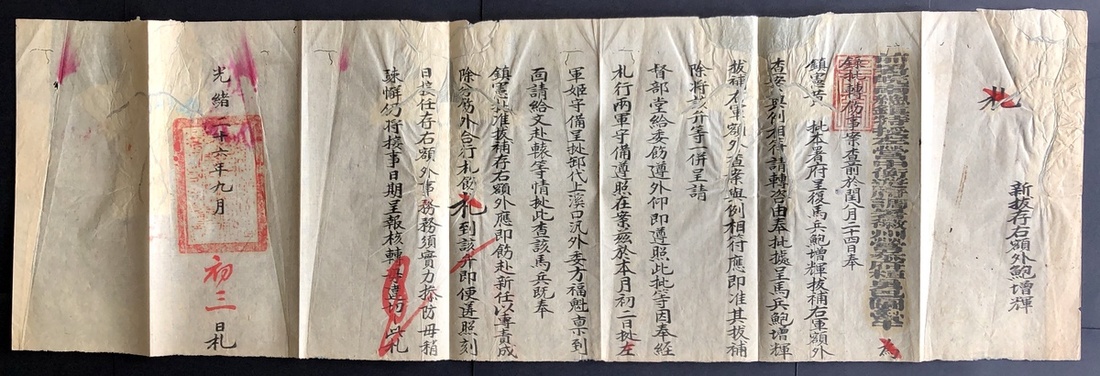 札
新拔存右額外鮑增輝
為
錄批轉飭事案查前於閏八月二十四日奉
鎮憲批本署府呈復馬兵鮑增輝拔補右軍額外
查案與例相符請轉咨由奉批據呈馬兵鮑增輝
拔補右軍額外查案與例相符應即准其拔補
除將該弁等一併呈請
督部堂給委飭遵外仰即遵照此批等因奉經
札行兩軍守備遵照在案茲於本月初二日據左
軍姬守備呈據卸代上溪口汛外委方福魁稟到
面請給文赴轅等情據此查該馬兵既奉
鎮憲批准拔補存右額外應即飭赴新任以專責成
除分飭外合行札飭札到該弁即便遵照刻
日接任存右額外事務務須實力操防毋稍
疎懈仍將接事日期呈報核轉毋違切切此札
光緒二十六年九月初三日札